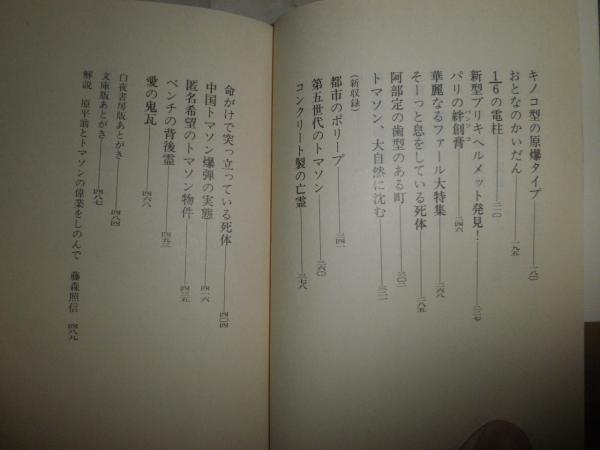 キノコ型の原爆タイプ 一八〇
おとなのかいだん 一九五
1/6の電柱 二一〇
新型ブリキヘルメット発見！ 二二七
パリの絆創膏 二四六
華麗なるファール大特集 二六八
そーっと息をしている死体 二八五
阿部定の歯型のある町 三〇二
トマソン、大自然に沈む 三二一
（新収録）
都市のポリープ 三四一
第五世代のトマソン 三六〇
コンクリート製の亡霊
命がけで突っ立っている死体 四〇四
中国トマソン爆弾の実態 四一六
匿名希望のトマソン物件 四三五
ベンチの背後霊 四五三
愛の鬼瓦 四六八
白夜書房版あとがき 四八四
文庫版あとがき 四八七
解説　原平翁とトマソンの偉業をしのんで　藤森照信 四八九